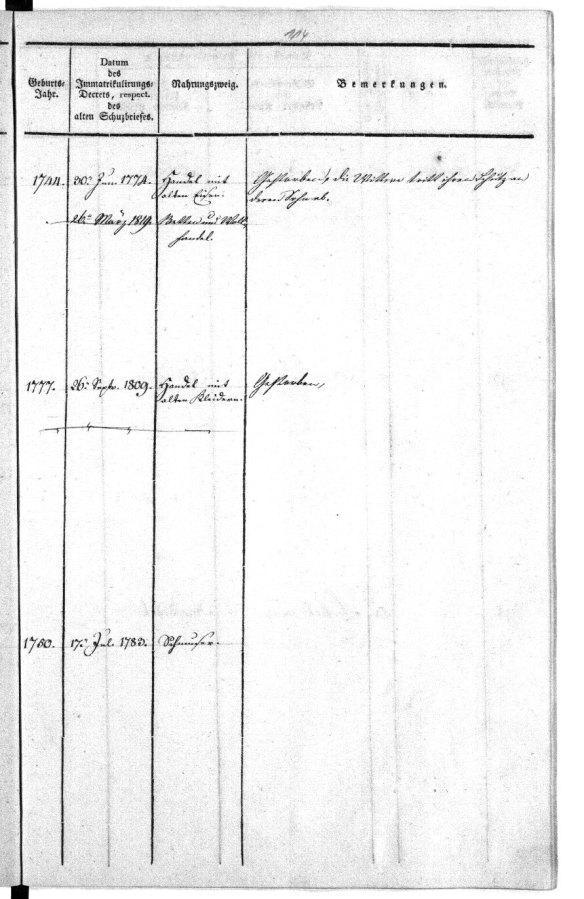 114
Geburts-
Jahr.
Datum
des
Immatrikulirungs-
Decrets, respect.
des
alten Schuzbriefes.
Nahrungszweig.
Bemerkungen.
1744. 30. Jun. 1774. Handel mit Gestorben, die Wittwe tritt ihren Schutz an
alten Eisen. deren Sohn ab.
26. März 1819. Betten und Woll-
handel.
1777. 26. Sept. 1809. Handel mit Gestorben,
alten Kleidern.
" "
1750. 17. Jul. 1783. Schmuser.